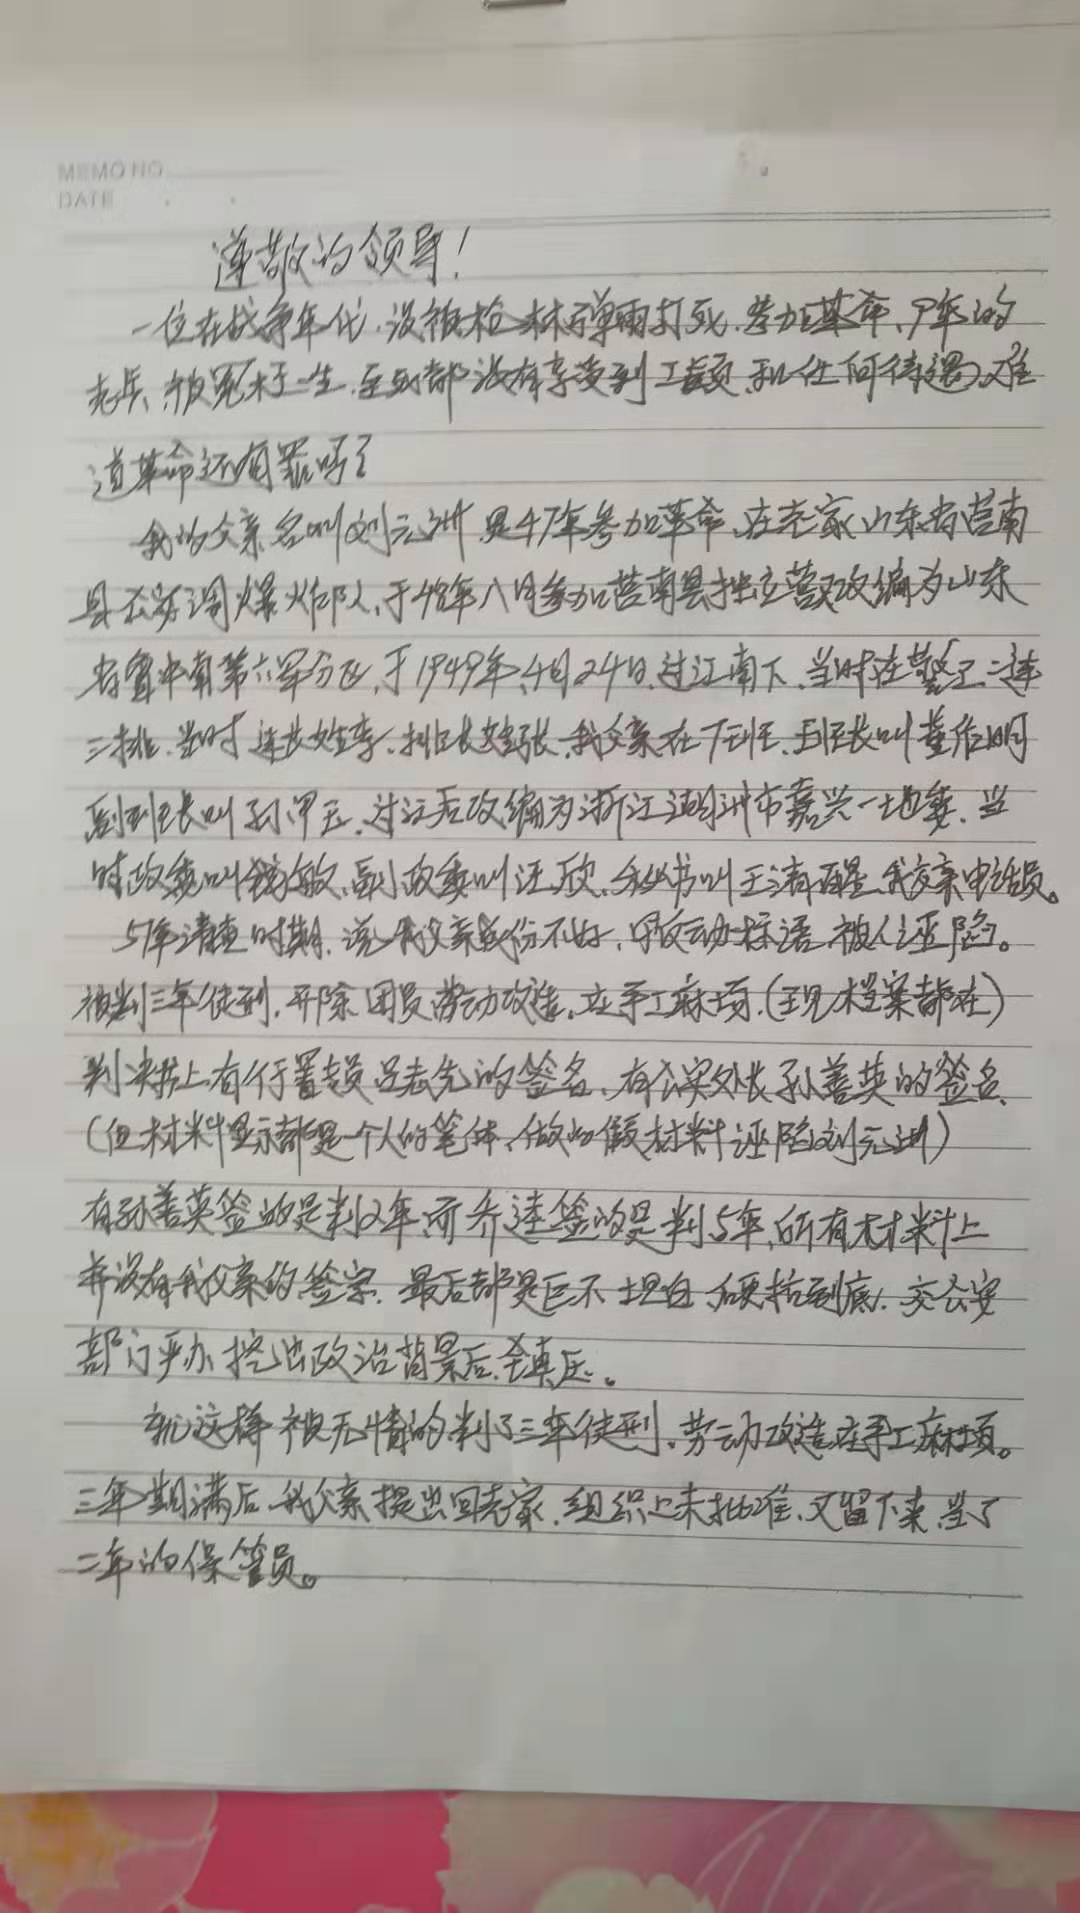 MEMO NO
DATE
尊敬的领导!
一位在战争年代.没被枪林弹雨打死.参加革命、9年的
老兵、被冤枉了一生.至死都没有享受到工龄和任何待遇、难
道革命还有罪吗?
我的父亲名叫刘元洲.是47年参加革命、在老家山东省莒南
县 爆炸队、于48年八月参加莒南县独立营改编为山东
省鲁中南第六军分区,于1949年4月24日.过江南下、当时在警卫二连
三排、当时连长姓李、排长姓张、我父亲在7班、班长叫董作明
副班长叫孙甲玉、过江后改编为浙江湖洲市嘉兴一地委、当
时政委叫钱敏、副政委叫汪欣、秘书叫王清 、我父亲电话员。
51年清查时期、说我父亲成份不好,写反动标语 被人诬陷。
被判三年徒刑、开除团员劳动改造、在手工麻场.(至现档案都在)
判决书上有行署专员吕志先的签名、有公安处长孙善英的签名、
(但材料显示都是一个人的笔体、做的假材料诬陷刘元洲)
有孙善英签的是判2年、而乔 签的是判5年、所有材料上
并没有我父亲的签字、最后都是巨不坦白、硬抗到底、交公安
部门严办、挖出政治背景后、镇压。
就这样被无情的判了三年徒刑、劳动改造在手工麻场。
三年期满后、我父亲提出回老家、组织上未批准、又留下来、当了
二年的保管员。